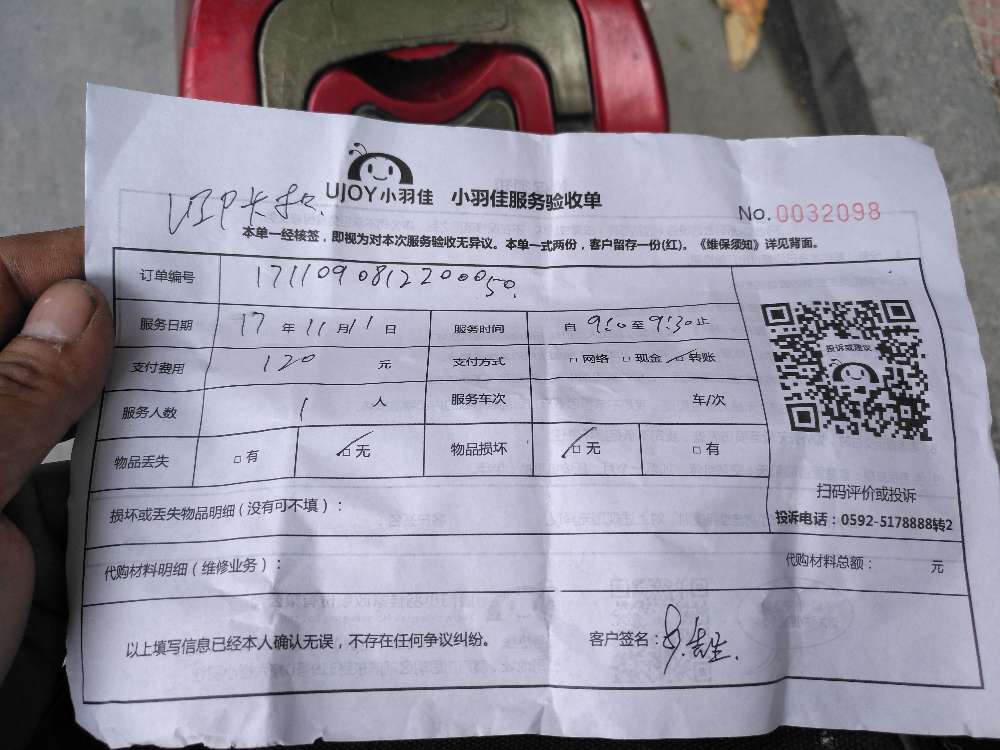 UJOY小羽佳 小羽佳服务验收单
VIP卡扣.
No.0032098
本单一经核签，即视为对本次服务验收无异议。本单一式两份，客户留存一份(红)。《维保须知》详见背面。
订单编号 17110908122000050.
服务日期 17年11月11日 服务时间 自9:10至9:30止
支付费用 120元 支付方式 □网络 □现金 □转账
服务人数 1人 服务车次 车/次
物品丢失 □有 □无 物品损坏 □无 □有
投诉或建议
扫码评价或投诉
投诉电话：0592-5178888转2
损坏或丢失物品明细(没有可不填)：
代购材料明细(维修业务)： 代购材料总额： 元
以上填写信息已经本人确认无误，不存在任何争议纠纷。 客户签名：先生.